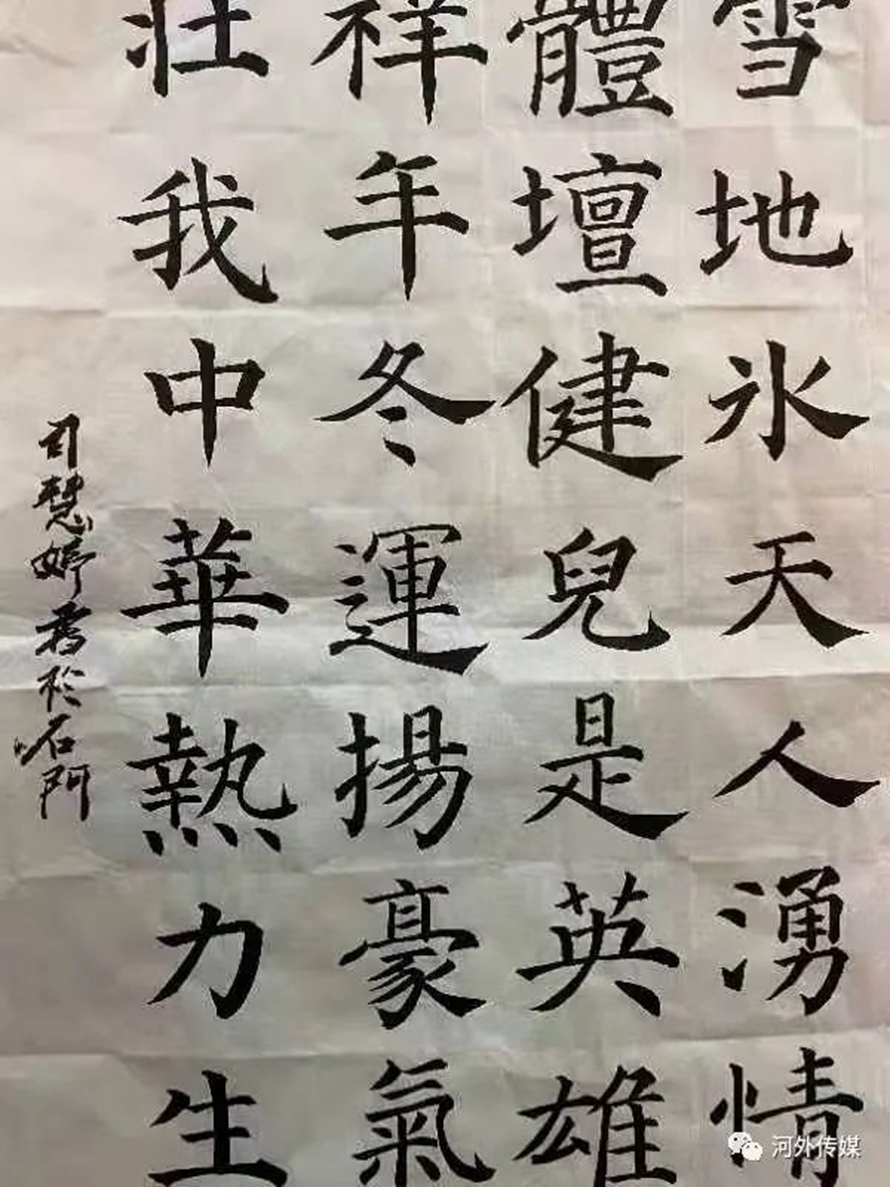 雪地氷天人湧情
體壇健兒是英雄
祥年冬運揚豪氣
壯我中華熱力生
司慧婷書於石門
河外传媒